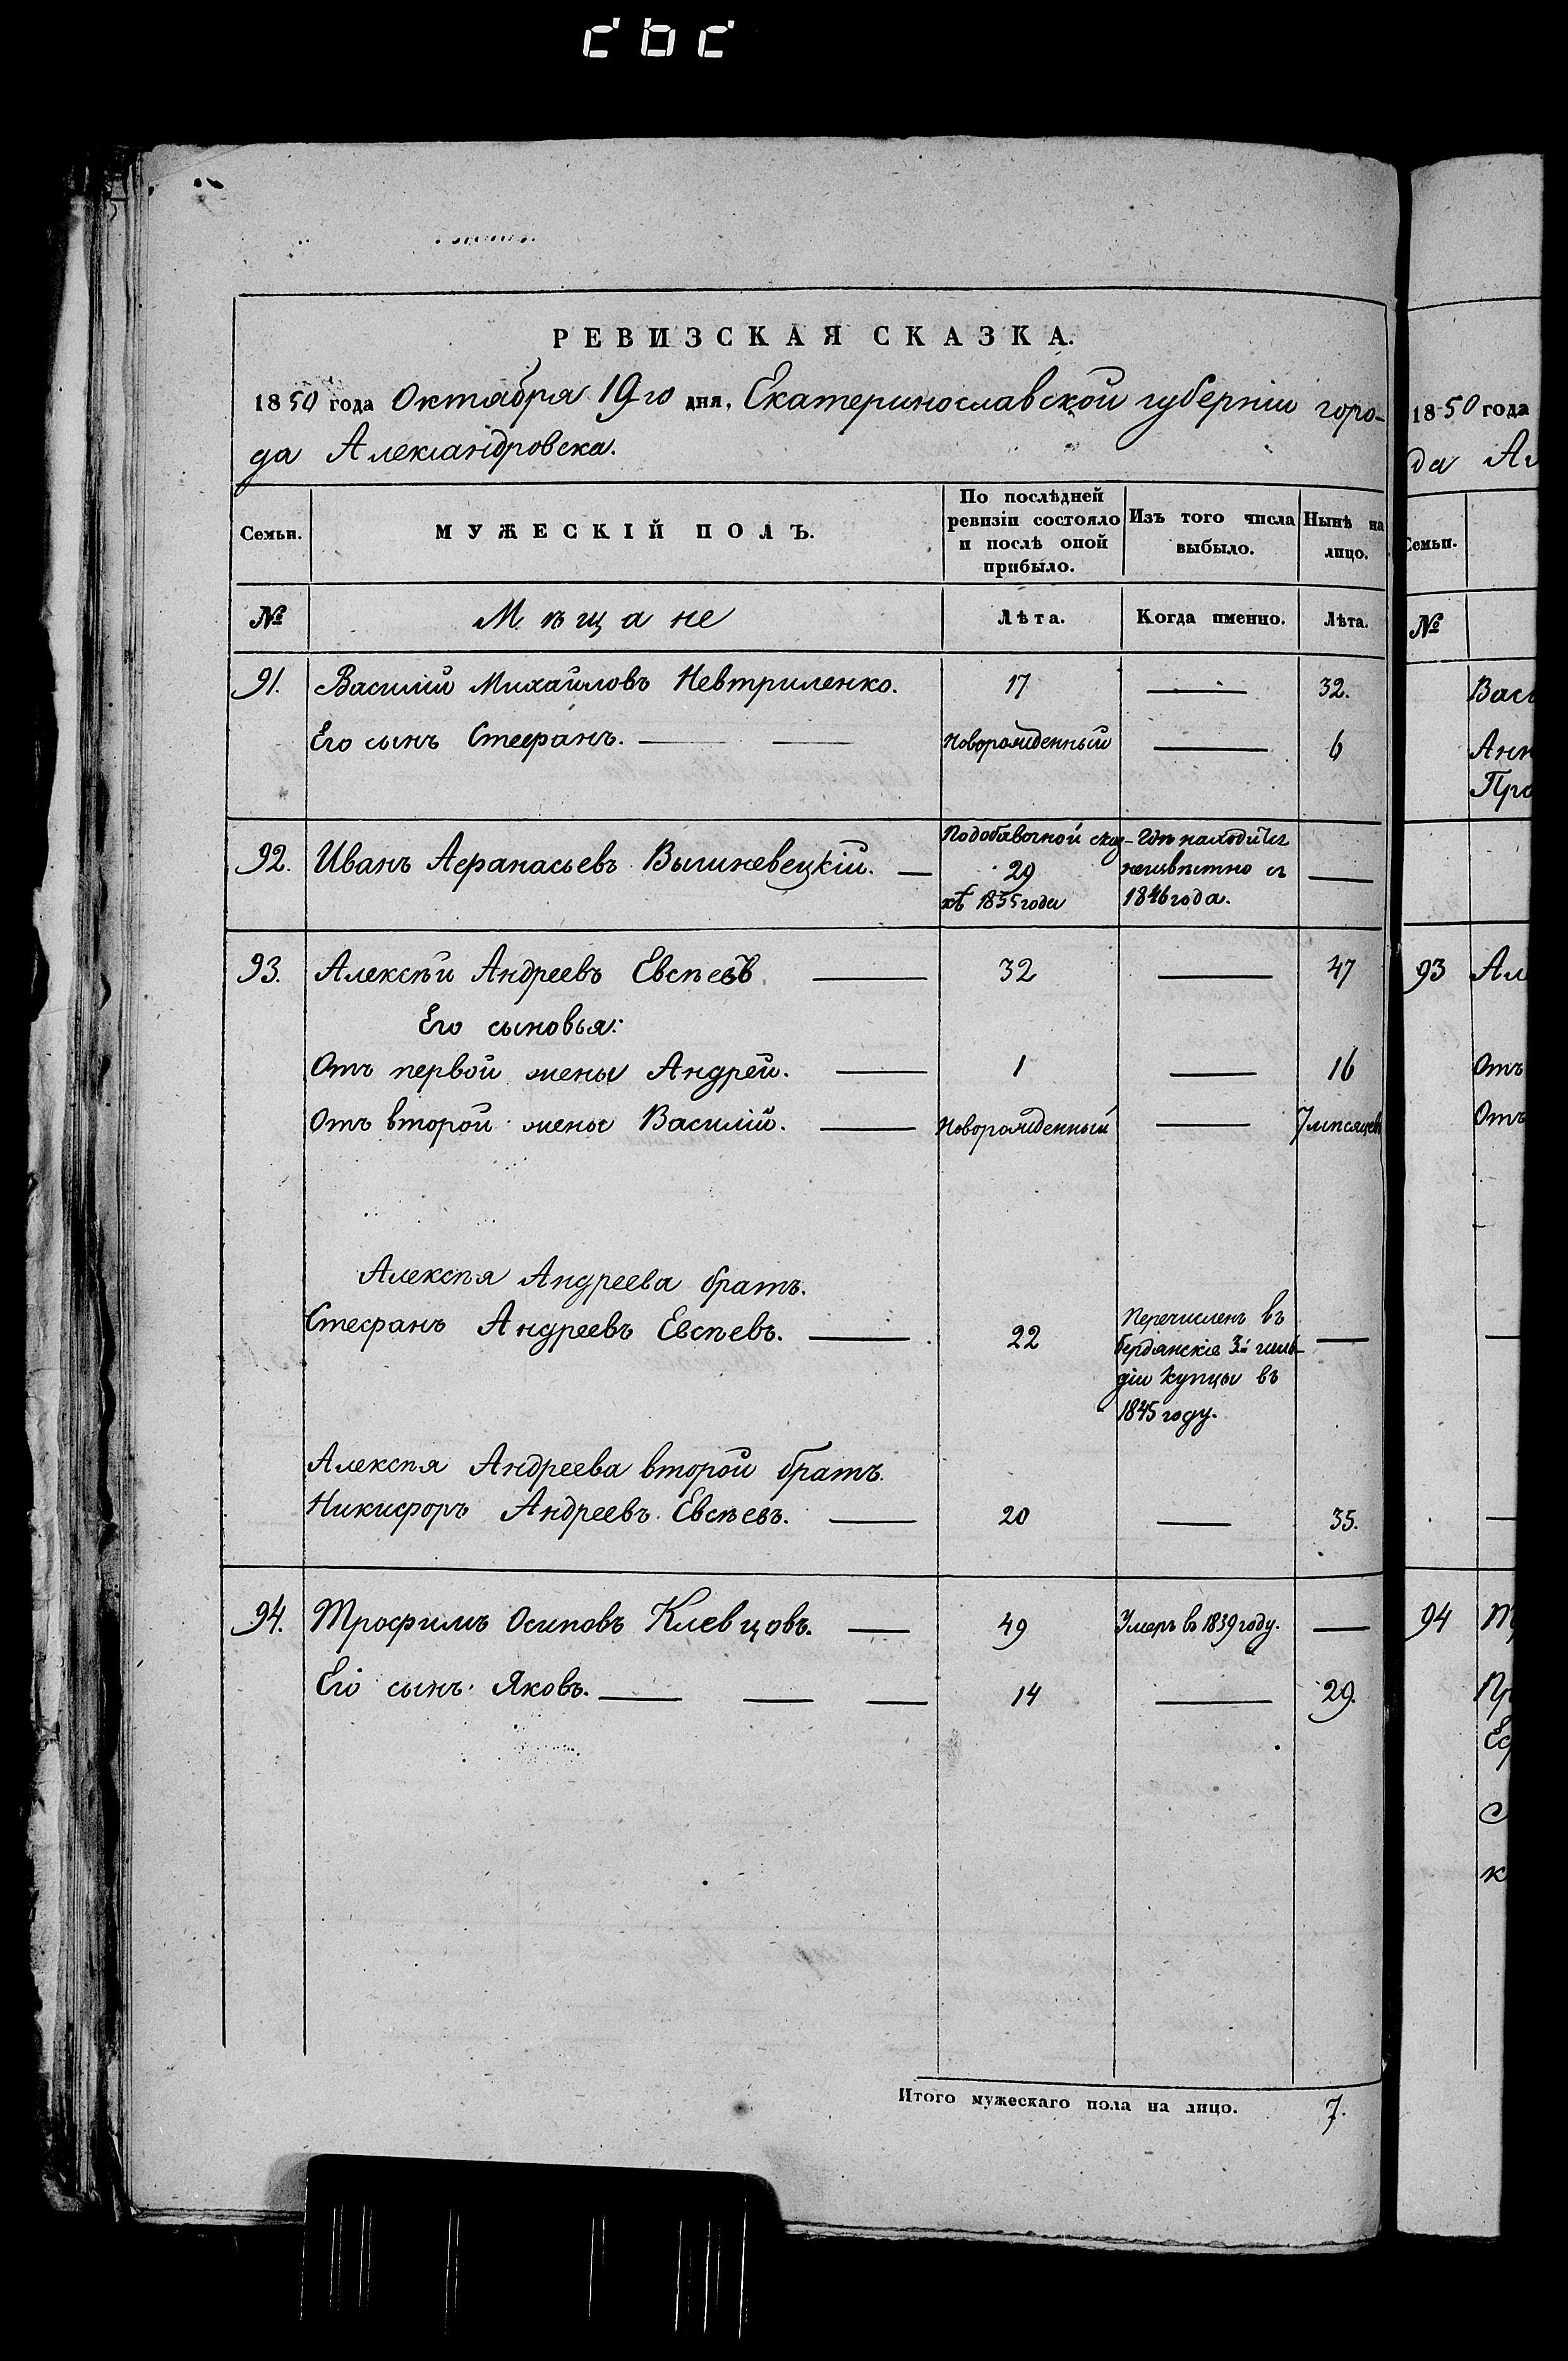 РЕВИЗСКАЯ СКАЗКА.
1850 года Октября 19го дня, Екатеринославской губерніи горо-
да Александровска.
Семьи.
МУЖЕСКІЙ ПОЛЪ.
По послѣдней
ревизіи состояло
и послѣ оной
прибыло.
Изъ того числа
выбыло.
Нынѣ на
лицо.
№ Мѣщане Лѣта. Когда именно. Лѣта.
91. Василій Михайловъ Невтриленко. 17 — 32.
Его сынъ Стефанъ. — — Новорожденный — 6
92. Иванъ Афанасьевъ Вышневецкій. —
Подобавочной сказ-
29
кѣ 1835 года
Гдѣ находится
неизвѣстно съ
1846 года.
—
93. Алексѣй Андреевъ Евсѣевъ — 32 — 47
Его сыновья:
Отъ первой жены Андрей. — 1 — 16
Отъ второй жены Василій. — Новорожденный — 7 мѣсяцевъ
Алексѣя Андреева братъ.
Стефанъ Андреевъ Евсѣевъ. — 22
Перечисленъ въ
бердянскіе 3й гиль-
діи купцы въ
1845 году.
—
Алексѣя Андреева второй братъ.
Никифоръ Андреевъ Евсѣевъ. — 20 — 35.
94. Трофимъ Осиповъ Клевцовъ. — 49 Умеръ въ 1839 году. —
Его сынъ Яковъ. — — — 14 — 29.
Итого мужескаго пола на лицо. 7.
1850 года
да
Семьи.
№
93
Отъ
Отъ
94